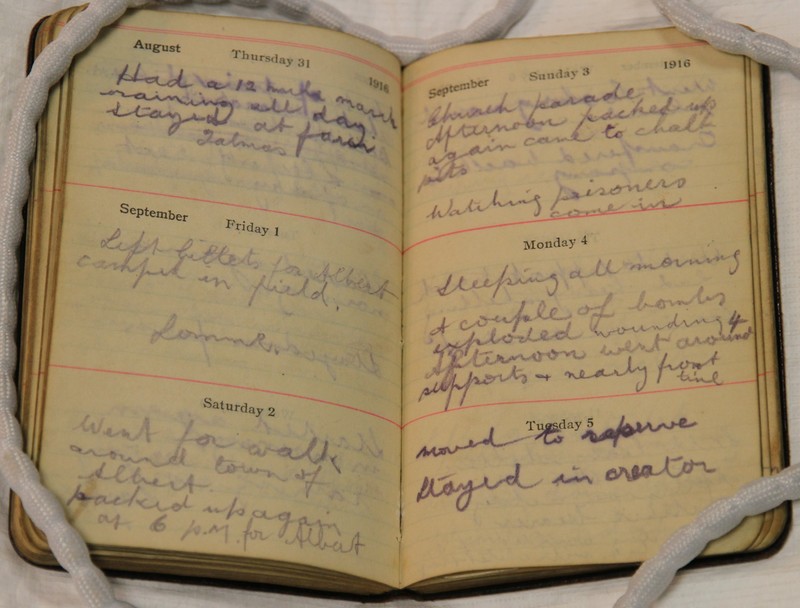 August Thursday 31 1916
Had a 12 mile march
raining all day.
Stayed at farm
Talmas
September Friday 1
Left billets for Albert
camped in field.
Saturday 2
Went for walk
around town of
Albert.
packed up again
at 6 p.m. for Albert
September Sunday 3 1916
Church parade
Afternoon packed up
again came to chalk
pits
Watching prisoners
come in
Monday 4
Sleeping all morning
A couple of bombs
exploded wounding 4
Afternoon went around
supports + nearly front
line
Tuesday 5
moved to reserve
Stayed in creator